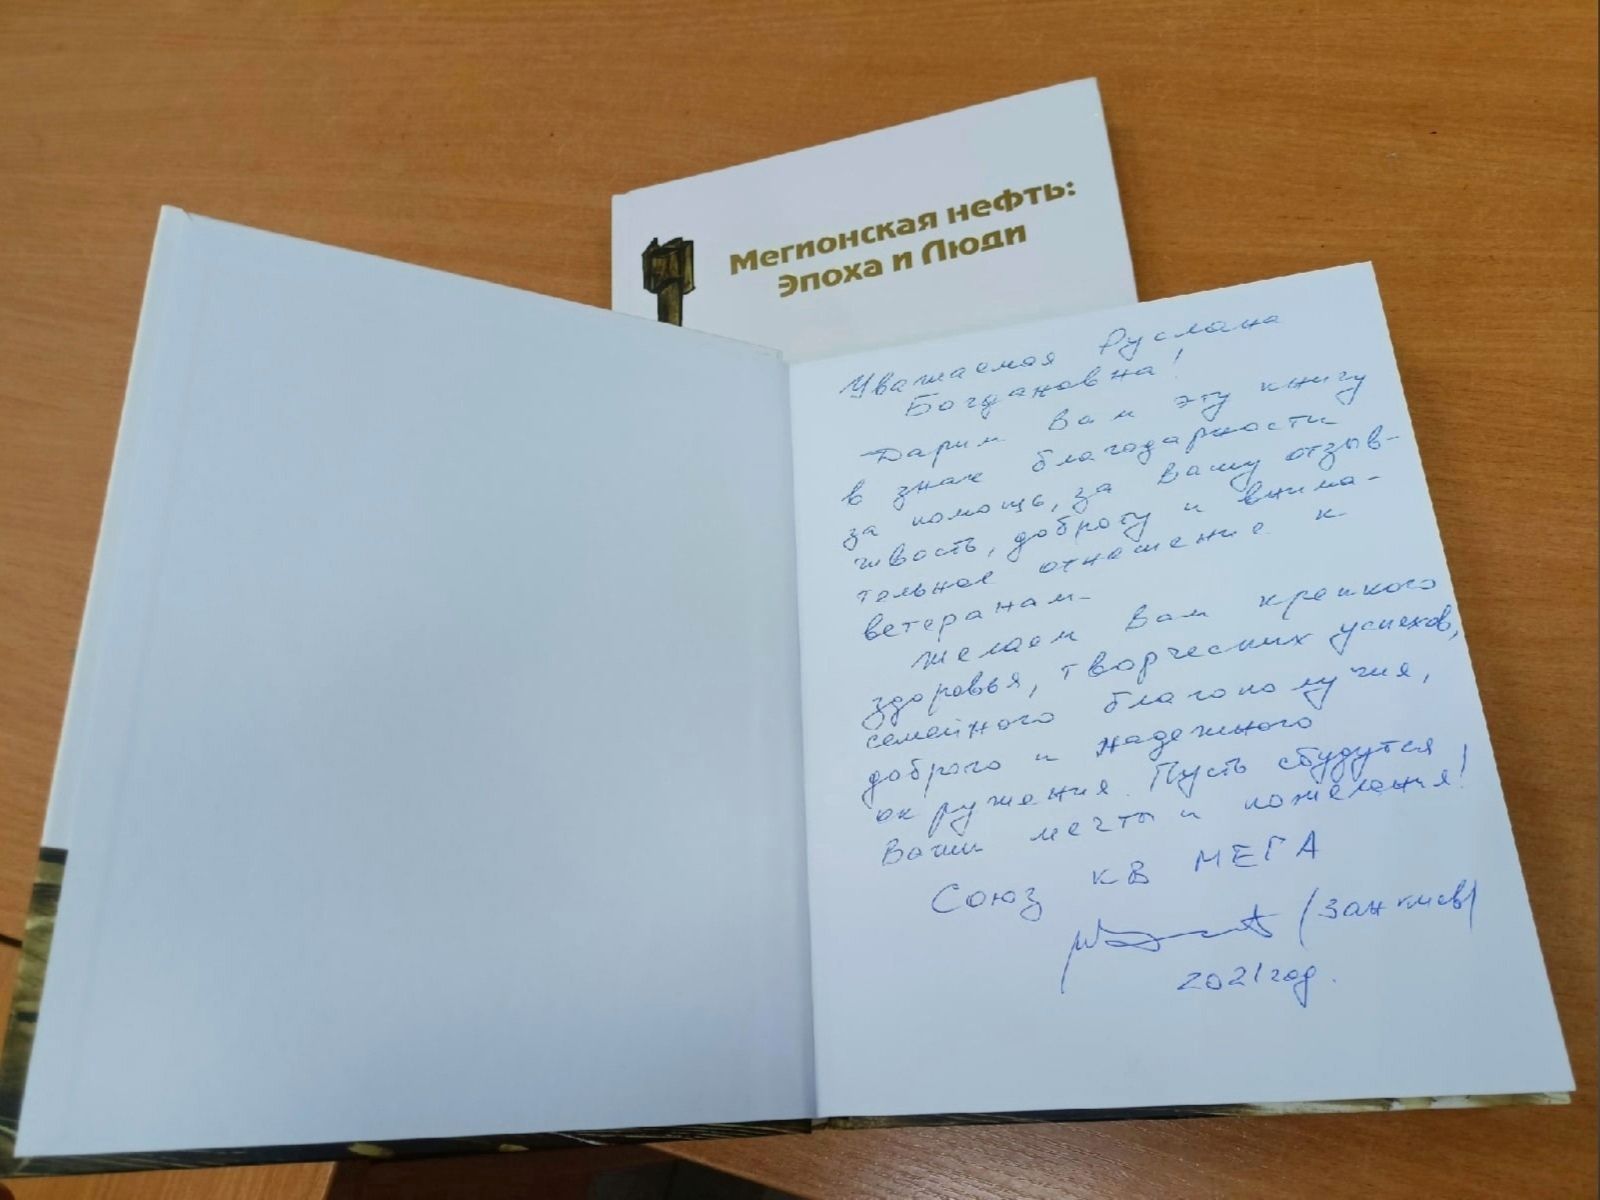 Мегионская нефть:
Эпоха и Люди
Уважаемая Руслана
Богдановна!
Дарим Вам эту книгу
в знак благодарности
за помощь, за Вашу отзыв-
чивость, доброту и внима-
тельное отношение к
ветеранам.
Желаем Вам крепкого
здоровья, творческих успехов,
семейного благополучия,
доброго и надежного
окружения. Пусть сбудутся
Ваши мечты и пожелания!
Союз КВ МЕГА
2021 год.